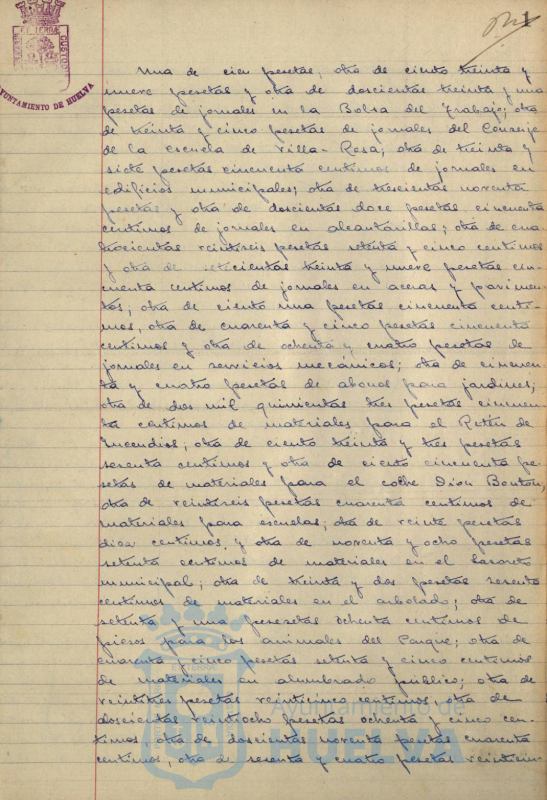 Y TERRÆ CUSTODIA
AYUNTAMIENTO DE HUELVA
Una de cien pesetas, otra de ciento treinta y
nueve pesetas y otra de doscientas treinta y una
pesetas de jornales en la Bolsa del Trabajo; otra
de treinta y cinco pesetas de jornales del Conserje
de la escuela de Villa-Rosa; otra de treinta y
siete pesetas cincuenta centimos de jornales en
edificios municipales; otra de trescientas noventa
pesetas y otra de doscientas doce pesetas cincuenta
centimos de jornales en alcantarillas; otra de cua-
trocientas veintiseis pesetas setenta y cinco centimos
y otra de setecientas treinta y nueve pesetas cin-
cuenta centimos de jornales en aceras y pavimen-
tos; otra de ciento una pesetas cincuenta centi-
mos, otra de cuarenta y cinco pesetas cincuenta
centimos y otra de ochenta y cuatro pesetas de
jornales en servicios mecánicos; otra de cincuen-
ta y cuatro pesetas de abonos para jardines;
otra de dos mil quinientas tres pesetas cincuen-
ta centimos de materiales para el Retén de
Incendios; otra de ciento treinta y tres pesetas
sesenta centimos y otra de ciento cincuenta pe-
setas de materiales para el coche Dion Bouton;
otra de veintiseis pesetas cuarenta centimos de
materiales para escuelas; otra de veinte pesetas
diez centimos y otra de noventa y ocho pesetas
setenta centimos de materiales en el Lazareto
municipal; otra de treinta y dos pesetas sesenta
centimos de materiales en el arbolado; otra de
setenta y una pesesetas ochenta centimos de
piensos para los animales del Parque; otra de
cuarenta y cinco pesetas setenta y cinco centimos
de materiales en alumbrado público; otra de
veintitres pesetas veinticinco centimos, otra de
doscientas veintiocho pesetas ochenta y cinco cen-
timos, otra de doscientas noventa pesetas cuarenta
centimos, otra de sesenta y cuatro pesetas veinticin-
Ayuntamiento de
HUELVA